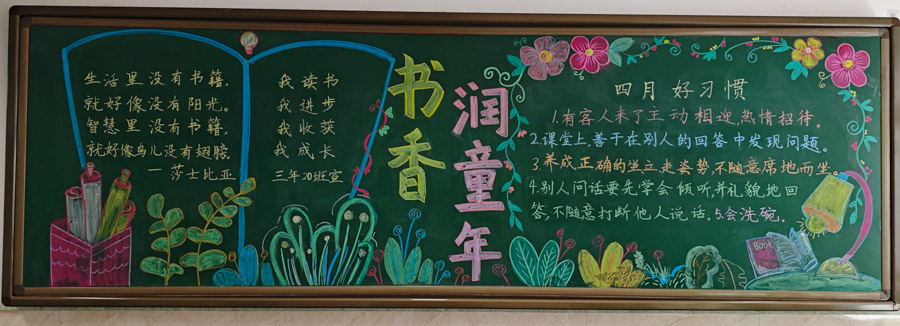 生活里没有书籍,
就好像没有阳光。
智慧里没有书籍,
就好像鸟儿没有翅膀。
—莎士比亚
我读书
我进步
我收获
我成长
三年20班宣
书香
润童年
四月 好习惯
1.有客人来了主动相迎,热情招待。
2.课堂上,善于在别人的回答中发现问题。
3.养成正确的坐立走姿势,不随意席地而坐。
4.别人问话要先学会倾听,并礼貌地回
答,不随意打断他人说话。5.会洗碗.
Book